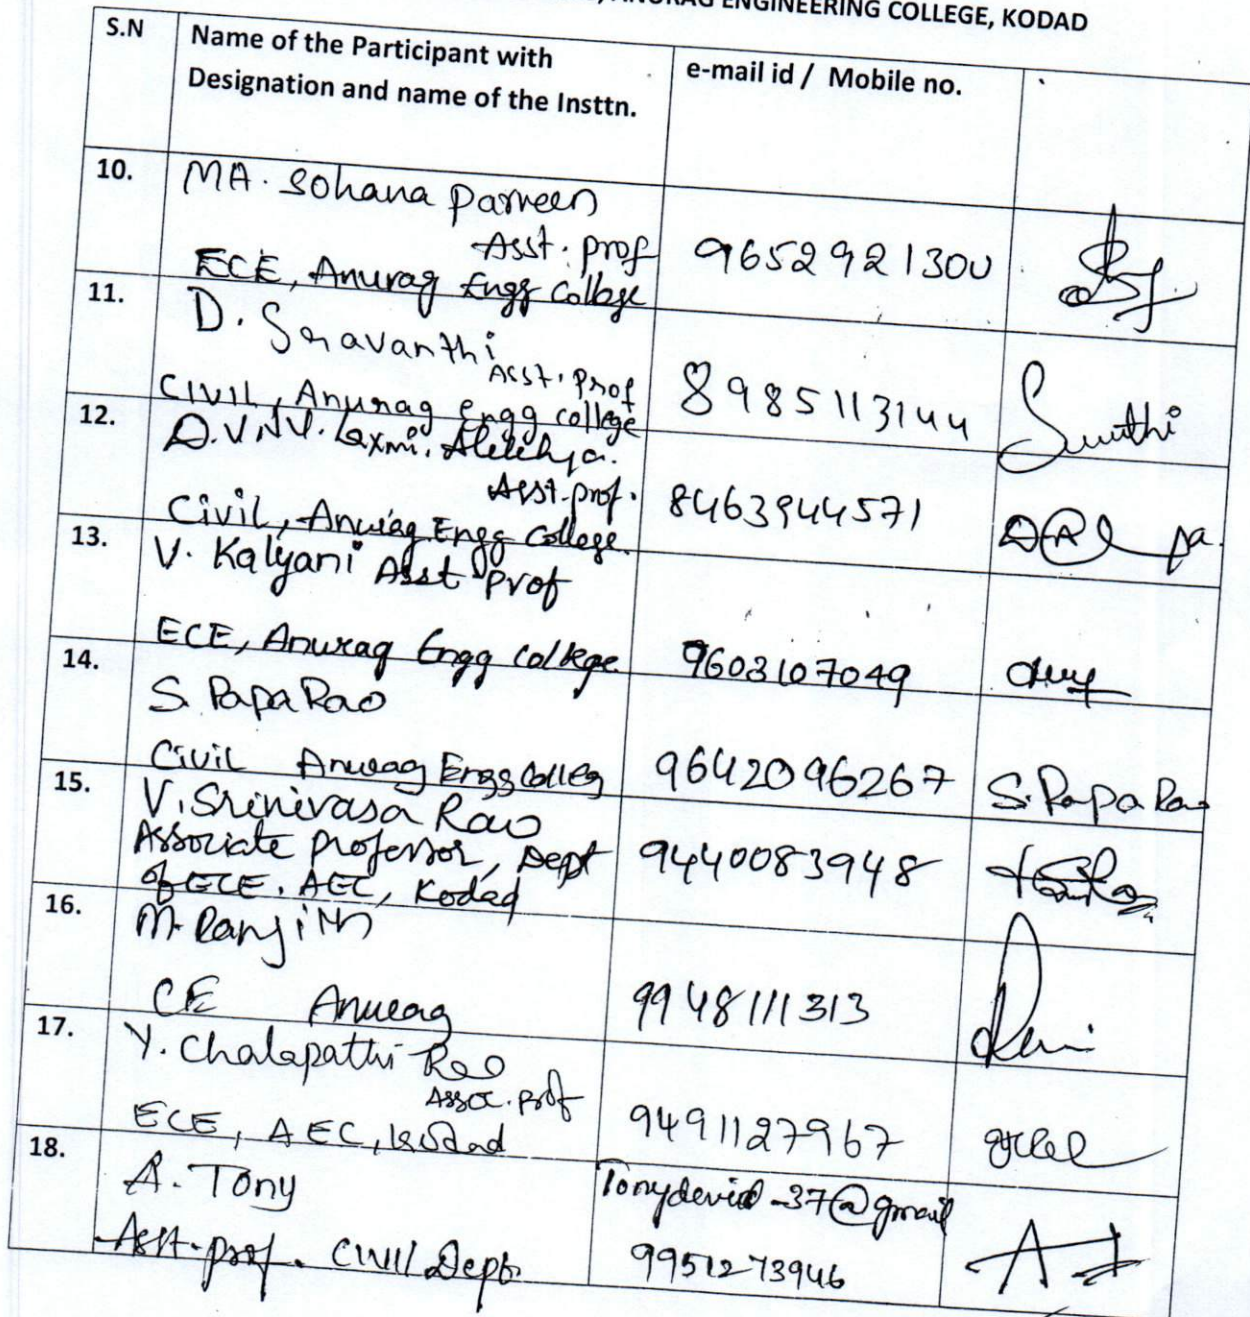 ANURAG ENGINEERING COLLEGE, KODAD
S.N
Name of the Participant with
Designation and name of the Insttn.
e-mail id / Mobile no.
10.
MA. Sohana Parveen
Asst. prof
ECE, Anurag Engg College
9652921300
11.
D. Sravanthi
Asst. Prof
CIVIL, Anurag engg college
8985113144
12.
D.V.N.V. Laxmi. Alekhya.
Asst-prof.
Civil, Anurag Engg College.
8463944571
13.
V. Kalyani Asst prof
ECE, Anurag Engg college
9603107049
14.
S. Papa Rao
Civil Anurag Engg Colleg
9642096267
S. Papa Rao
15.
V. Srinivasa Rao
Associate professor, Dept
of ECE, AEC, Kodad
9440083948
16.
M. Ranjith
CE Anurag
9948111313
17.
Y. Chalapathi Rao
Assoc. prof
ECE, AEC, Kodad
9491127967
18.
A. Tony
Asst-prof. Civil Dept.
Tonydevid-37@gmail
9951273946